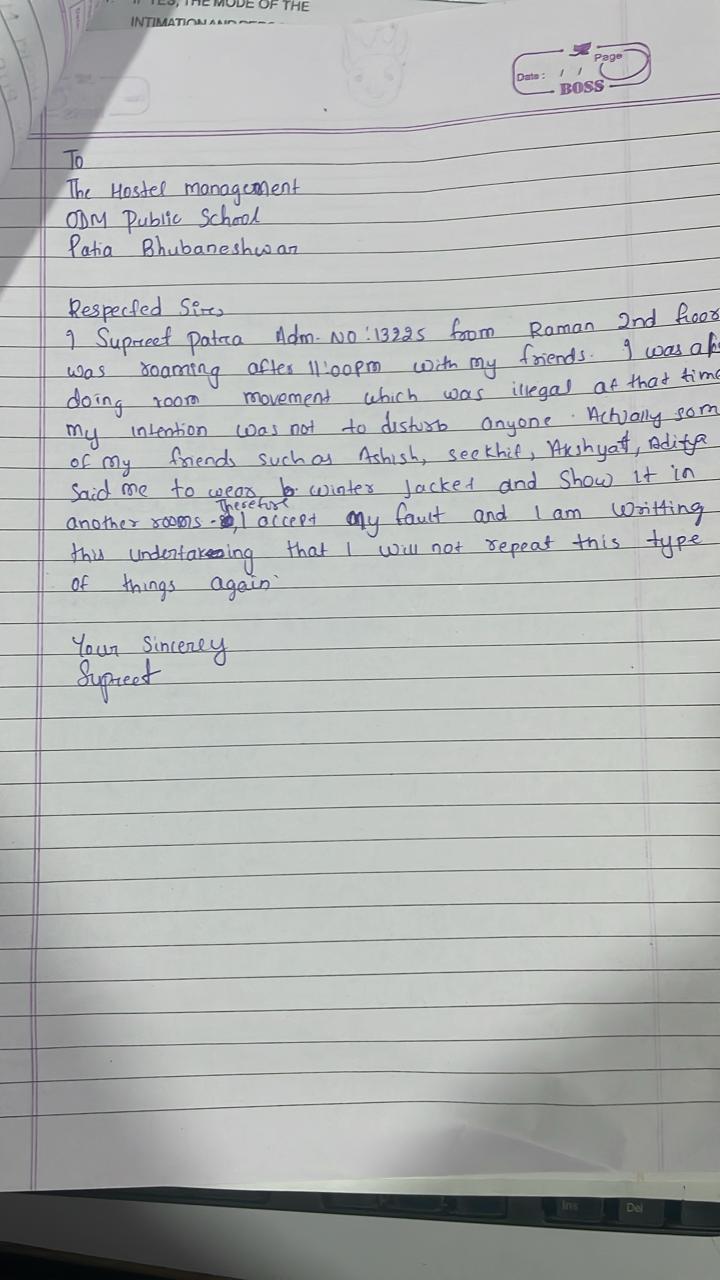 YES, THE MODE OF THE
INTIMATION AND
Page
Date: / /
BOSS
To
The Hostel management
ODM Public School
Patia Bhubaneshwar
Respected Sir,
I Supreet Patra Adm. NO : 13225 from Raman 2nd floor
was roaming after 11:00pm with my friends. I was al
doing room movement which was illegal at that time
my intention was not to disturb anyone. Actually som
of my friends such as Ashish, Seekhit, Akshyat, Aditya
Said me to wear winter Jacket and Show it in
Therefore
another rooms - I accept my fault and I am Writting
this undertakening that I will not repeat this type
of things again.
Your Sincerey
Supreet
Ins
Del